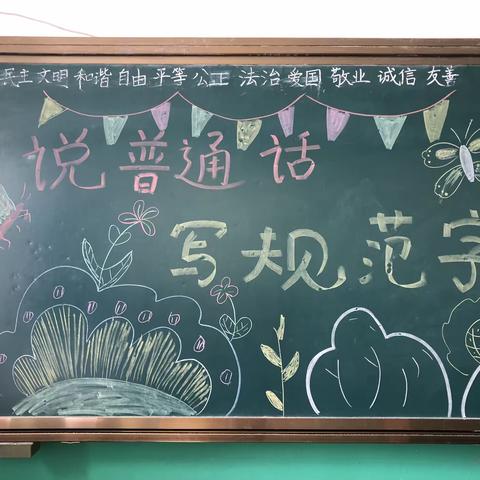 民主 文明 和谐 自由 平等 公正 法治 爱国 敬业 诚信 友善
说普通话
写规范字